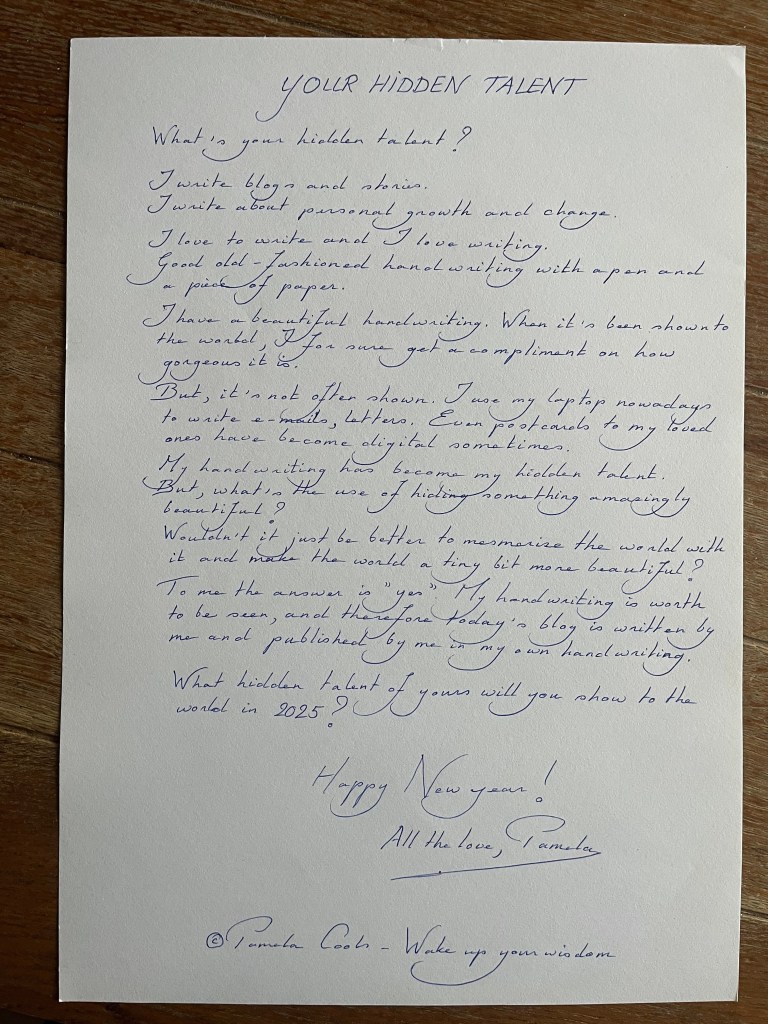 YOUR HIDDEN TALENT
What's your hidden talent?
I write blogs and stories.
I write about personal growth and change.
I love to write and I love writing.
Good old-fashioned handwriting with a pen and
a piece of paper.
I have a beautiful handwriting. When it's been shown to
the world, I for sure get a compliment on how
gorgeous it is.
But, it's not often shown. I use my laptop nowadays
to write e-mails, letters. Even postcards to my loved
ones have become digital sometimes.
My handwriting has become my hidden talent.
But, what's the use of hiding something amazingly
beautiful?
Wouldn't it just be better to mesmerize the world with
it and make the world a tiny bit more beautiful?
To me the answer is "yes". My handwriting is worth
to be seen, and therefore today's blog is written by
me and published by me in my own handwriting.
What hidden talent of yours will you show to the
world in 2025?
Happy New year!
All the love, Pamela
© Pamela Cools - Wake up your wisdom